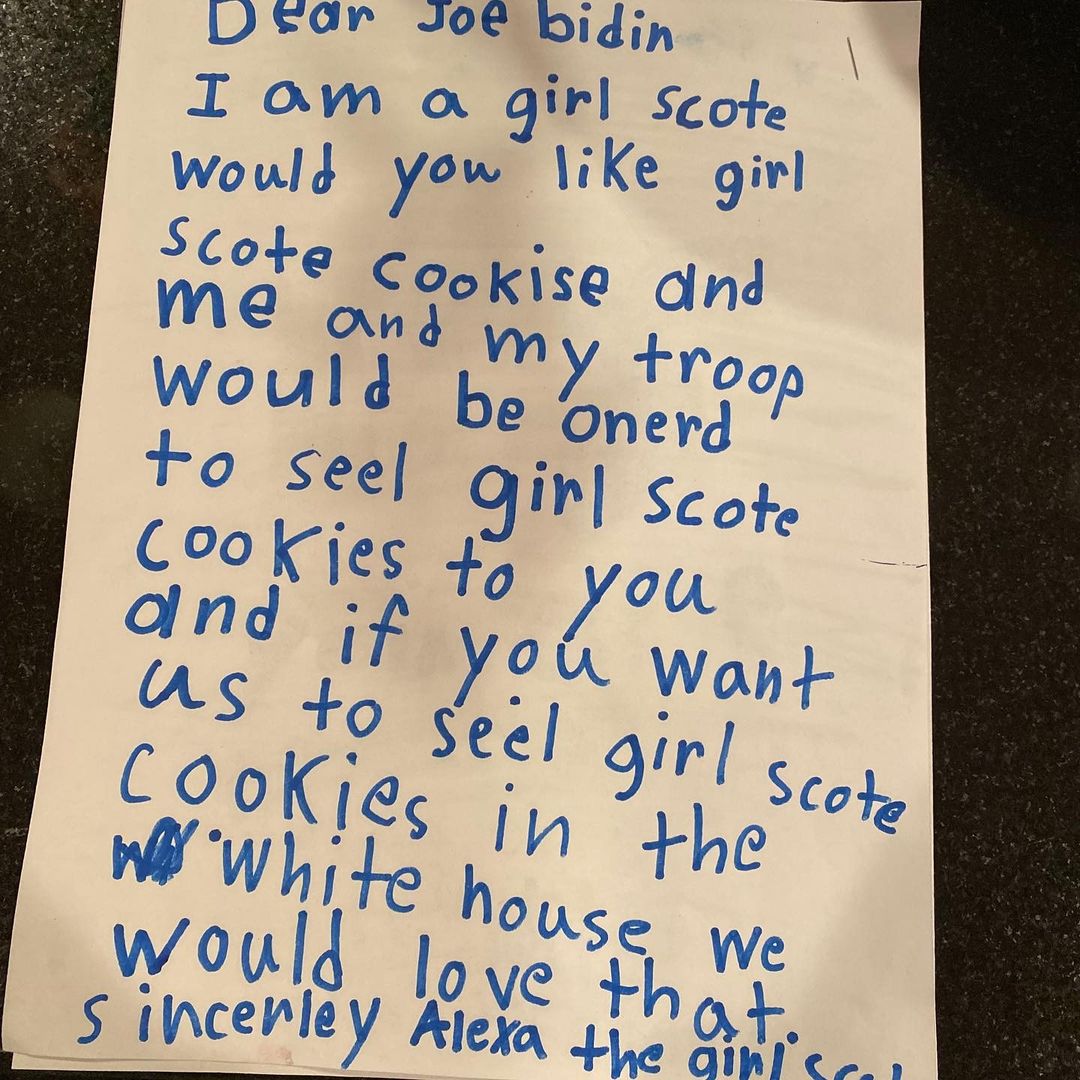 Dear Joe bidin
I am a girl scote
would you like girl
scote cookise and
me and my troop
would be onerd
to seel girl scote
cookies to you
and if you want
us to seel girl scote
cookies in the
white house we
would love that.
sincerley Alexa the girl